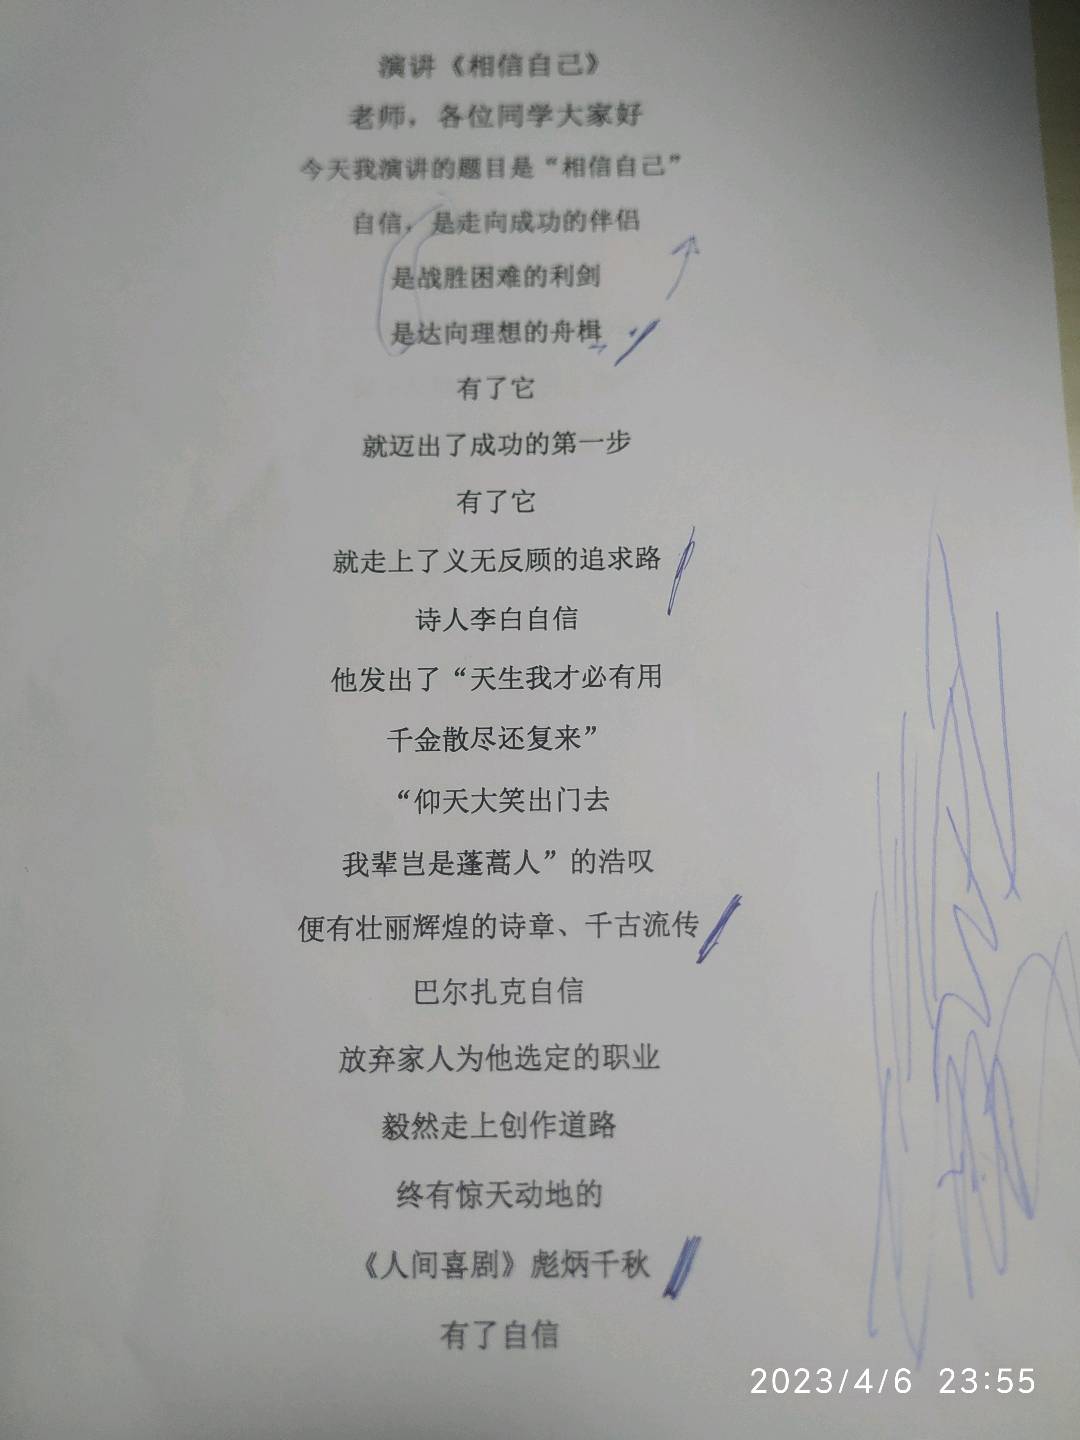 演讲《相信自己》
老师，各位同学大家好
今天我演讲的题目是“相信自己”
自信，是走向成功的伴侣
是战胜困难的利剑
是达向理想的舟楫
有了它
就迈出了成功的第一步
有了它
就走上了义无反顾的追求路
诗人李白自信
他发出了“天生我才必有用
千金散尽还复来”
“仰天大笑出门去
我辈岂是蓬蒿人”的浩叹
便有壮丽辉煌的诗章、千古流传
巴尔扎克自信
放弃家人为他选定的职业
毅然走上创作道路
终有惊天动地的
《人间喜剧》彪炳千秋
有了自信
2023/4/6 23:55